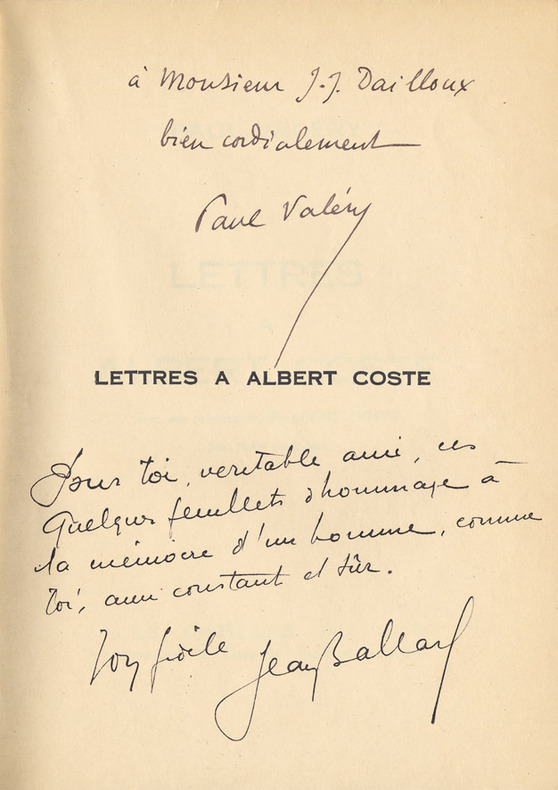 à Monsieur J.J. Dailloux
bien cordialement
Paul Valéry
LETTRES A ALBERT COSTE
Pour toi, veritable ami, ces
quelques feuillets d'hommage à
la mémoire d'un homme, comme
toi, ami constant et sûr.
Ton fidèle Jean Ballard